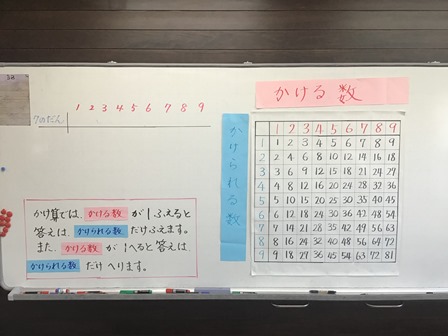 1 2 3 4 5 6 7 8 9
7のだん
かけ算では、かける数が1ふえると
答えは、かけられる数だけふえます。
また、かける数が1へると答えは、
かけられる数だけへります。
かける数
かけられる数
1 2 3 4 5 6 7 8 9
1 1 2 3 4 5 6 7 8 9
2 2 4 6 8 10 12 14 16 18
3 3 6 9 12 15 18 21 24 27
4 4 8 12 16 20 24 28 32 36
5 5 10 15 20 25 30 35 40 45
6 6 12 18 24 30 36 42 48 54
7 7 14 21 28 35 42 49 56 63
8 8 16 24 32 40 48 56 64 72
9 9 18 27 36 45 54 63 72 81